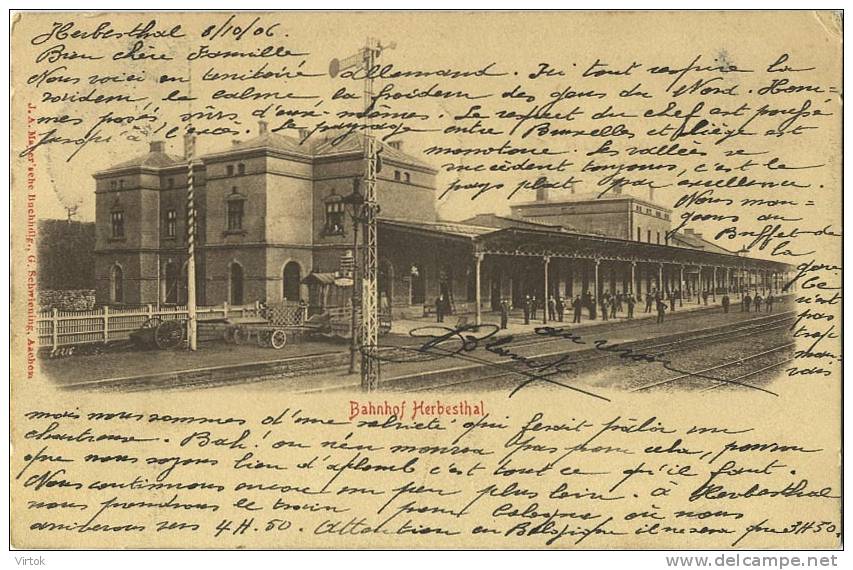 Herbesthal 8/10/06.
Bien chère Famille
Nous voici en territoire Allemand. Ici tout respire la
roideur, le calme, la froideur des gens du Nord. Hom-
mes posés sûrs d'eux-mêmes. Le respect du chef est poussé
jusqu'à l'excès. Le paysage entre Bruxelles et Liège est
monotone. Les vallées se
succèdent toujours, c'est le
pays plat par excellence.
Nous man-
geons au
Buffet de
la
gare
Ce
n'est
pas
trop
mau-
vais
J. A. Mayer'sche Buchhdlg., G. Schwiening, Aachen
Bahnhof Herbesthal
mais nous sommes d'une sobriété qui ferait pâlir un
chartreux. Bah! on n'en mourra pas pour cela, pourvu
que nous soyons bien d'aplomb c'est tout ce qu'il faut.
Nous continuons encore un peu plus loin. à Herbesthal
nous prendrons le train pour Cologne où nous
arriverons vers 4H.50. Attention en Belgique il ne sera que 3H50.
Virtok
www.delcampe.net